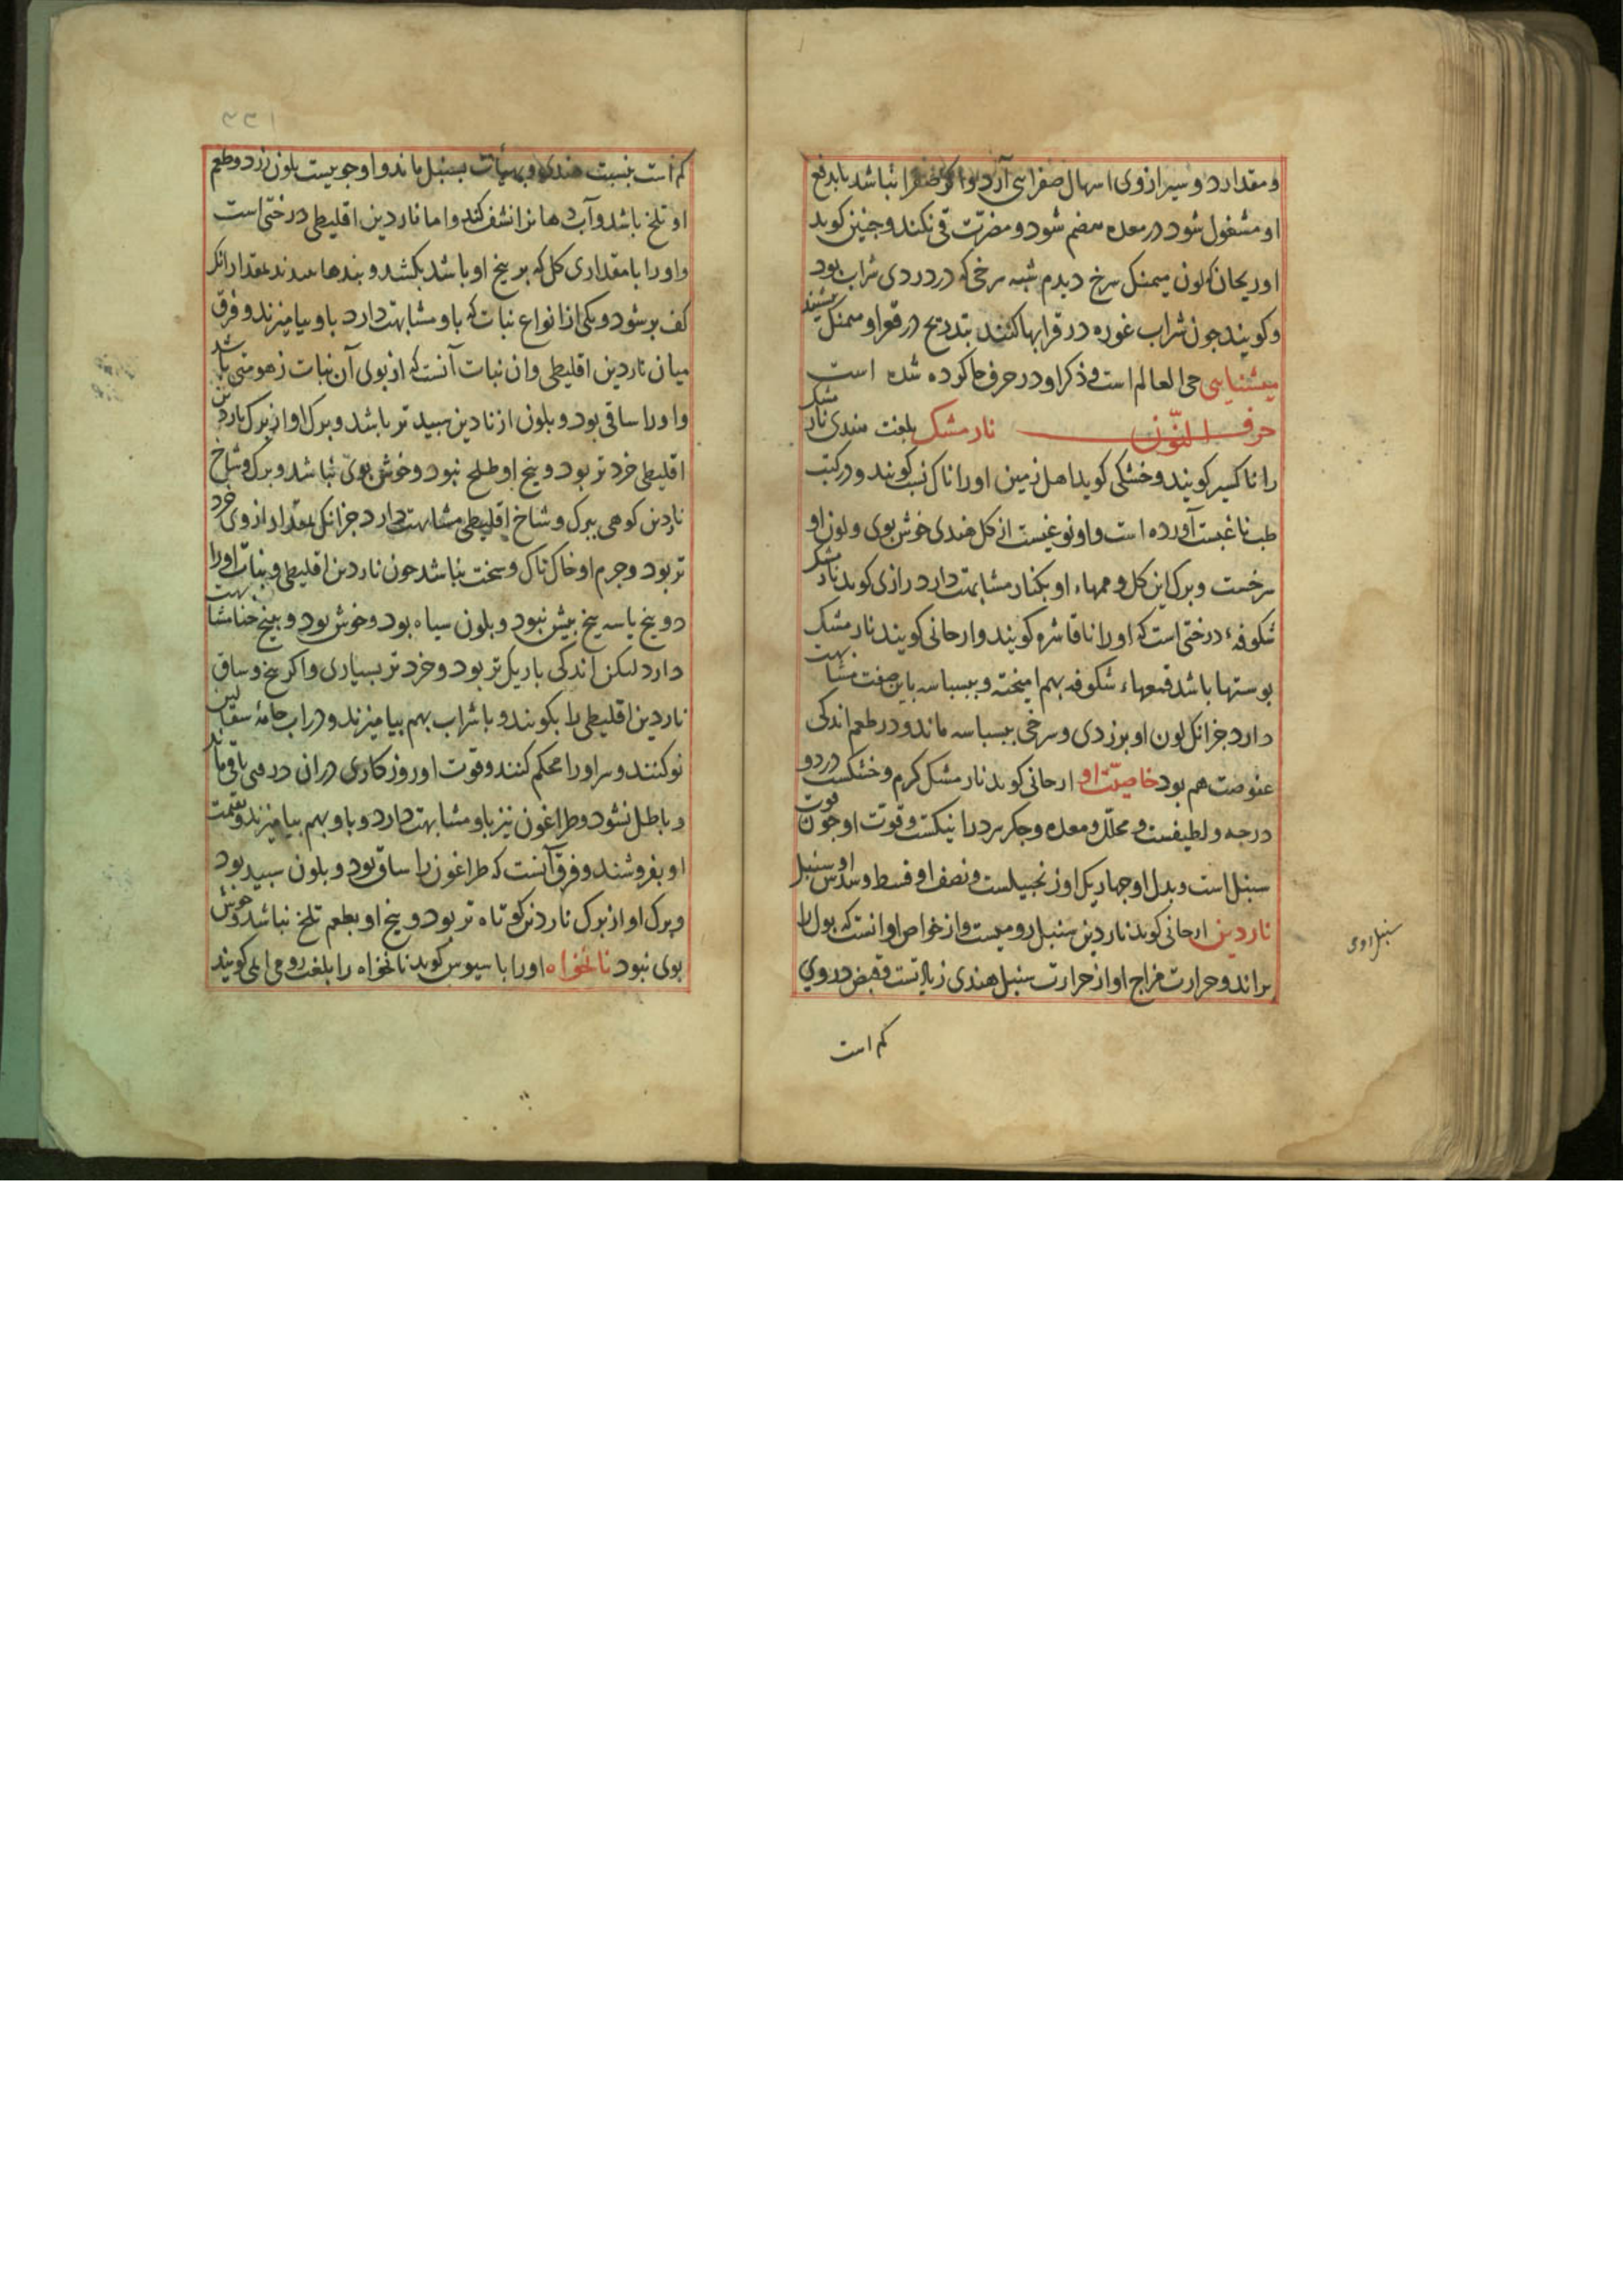 و مقدار دو سیر ازوی اسهال صفرا می آرد و اگر صفرا نباشد تا بدفع
او مشغول شود در معده هضم شود و مضرت قی نکند و چنین کوید
اوریحان که لون میمنک سرخ دیدم شبه سرخی که در دردی شراب بود
و کویند جون شراب غوره در قرابها کنند بتدریج در قعر او میمنک نشیند
میشنای حی العالم است و ذکر او در حرف حا کرده شده است
حرف النّون نارمشک بلغت هندی نار مشک
را ناکیسر کویند و خشکی کوید اهل زمین اورا ناک کویند و در کتب
طب ناغبست آورده است و او نوعیست از کل هندی خوش بوی و لون او
سرخست و برک این کل و او بکنار مشابهت دارد رازی کوید نار مشک
شکوفهٔ درختی است که اورا ناقاشره کویند و ارجانی کویند نار مشک
بوستها باشد قمعهاء شکوفه بهم امیخته و ببسباسه باین صفت مشابهت
دارد جز انکه لون او بزردی و سرخی ببسباسه ماند و در طعم اندکی
عفوصت هم بود خاصیّت او ارجانی کوید نار مشک کرم و خشکست در دو
درجه و لطیفست و محلّل و معده و جکر سرد را نیکست و قوت او جون قوت
سنبل است و بدل او جهار یک او زنجبیلست و نصف او قسط و سدس او سنبل
ناردین ارجانی کوید ناردین سنبل رومیست و از خواص او انست که بول را
براند و حرارت مزاج او از حرارت سنبل هندی زیادتست و قبض در وی
سنبل روی
کم است
کم است بنسبت هندی و بهیأت بسنبل ماند و او جوبیست بلون زرد و طعم
او تلخ باشد و آب دهانرا نشف کند و اما ناردین اقلیطی درختی است
و اورا با مقداری کل که بر بیخ او باشد بکشد و بندها بمقدار انک
کف بر شود و یکی از انواع نبات که باو مشابهت دارد باو بیامیزند و فرق
میان ناردین اقلیطی و ان نبات آنست که از بوی آن نبات زهومتی باشد
و اورا ساقی بود و بلون از نادین سبید تر باشد و برک او از برک ناردین
اقلیطی خرد تر بود و بیخ او طلخ نبود و خوش بوی نباشد و برک و شاخ
ناردین کوهی ببرک و شاخ اقلیطی مشابهت دارد جز انکه مقدار ازوی خرد
تر بود و جرم او خاک ناک و سخت نباشد جون ناردین اقلیطی و نبات اورا
دو بیخ یا سه بیخ بیش نبود و بلون سیاه بود و خوش بود و ببیخ خنثا مشابهت
دارد لیکن اندکی باریک تر بود و خرد تر بسیاری و اکر بیخ و ساق
ناردین اقلیطی را بکوبند و با شراب بهم بیامیزند و در اب جامهٔ سفالین
نو کنند و سر اورا محکم کنند و قوت او روزکاری در ان در می باقی ماند
و باطل نشود و طراغون نیز باو مشابهت دارد و باو بهم بیامیزند و بقیمت
او بفروشند و فرق آنست که طراغون را ساق بود و بلون سبید بود
و برک او از برک ناردین کوتاه تر بود و بیخ او بطعم تلخ نباشد و خوش
بوی نبود نانخواه اورا باسیوس کوید نانخواه را بلغت رومی امی کویند